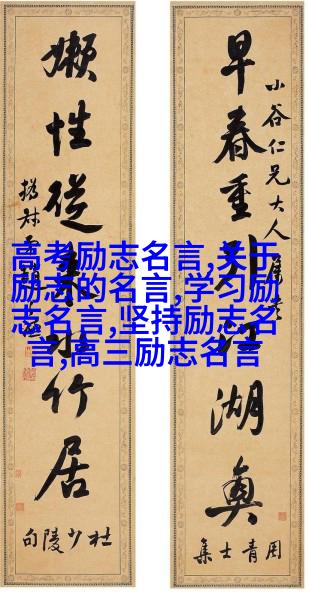 早春重引江湖興
小谷仁兄大人雅
周青士集
嬾性從来水竹居
杜少陵句
高考励志名言,关于
励志的名言,学习励
志名言,坚持励志名
言,高三励志名言